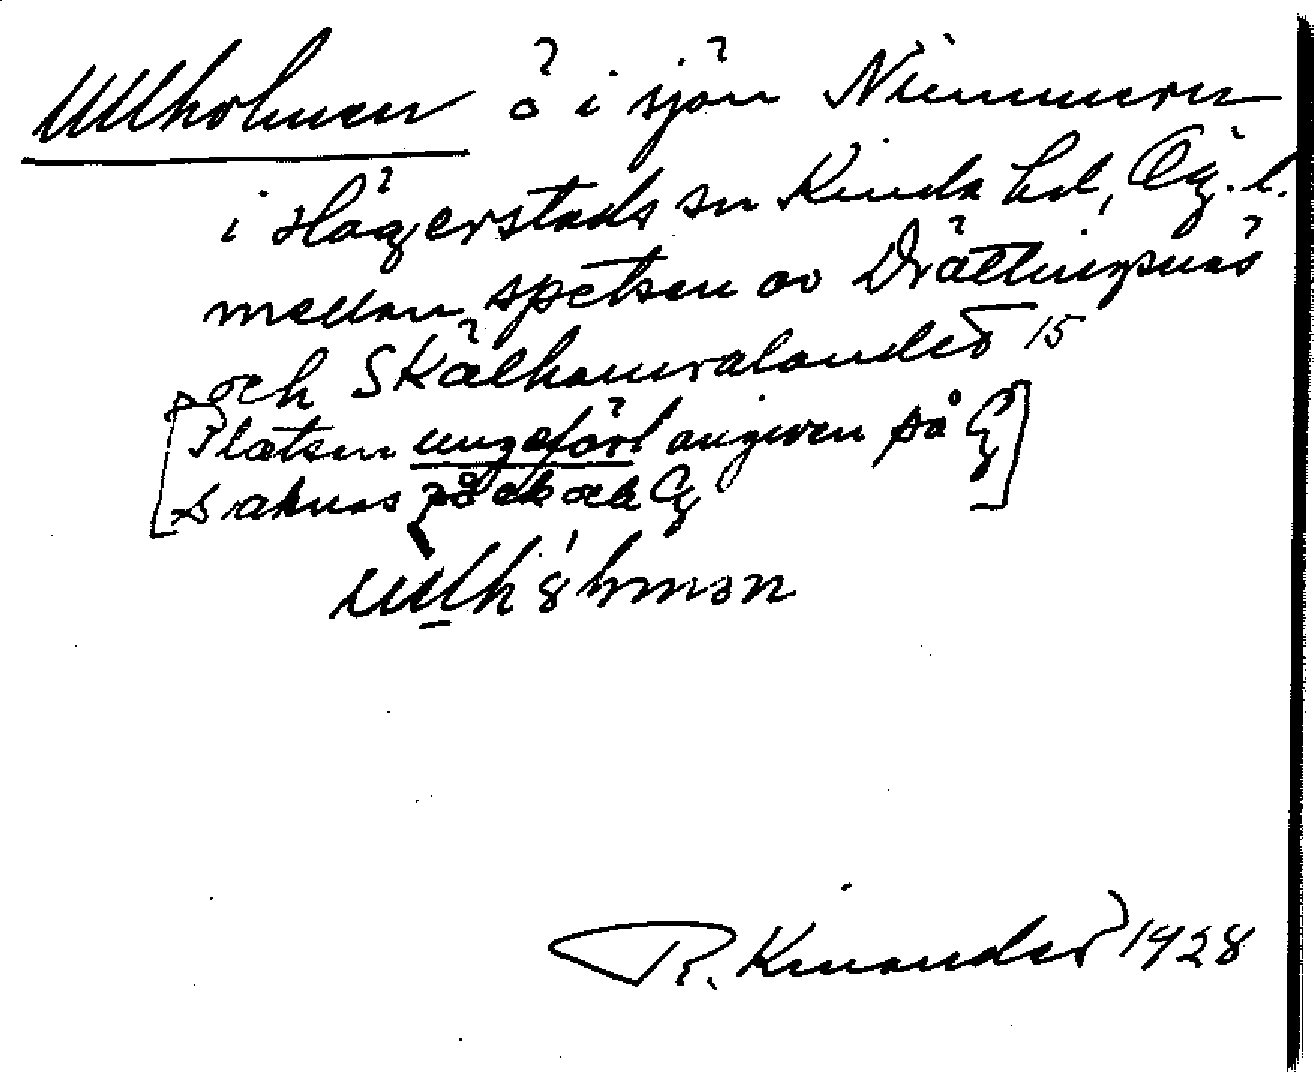 Ullholmen ö i sjön Nimmern
i Hägerstads sn Kinda hd, Ög. l.
mellan spetsen av Drättingsnäs
och Skälhamralandet 15
[Platsen ungefärl angiven på
saknas på ek och]
R. Kinander 1928